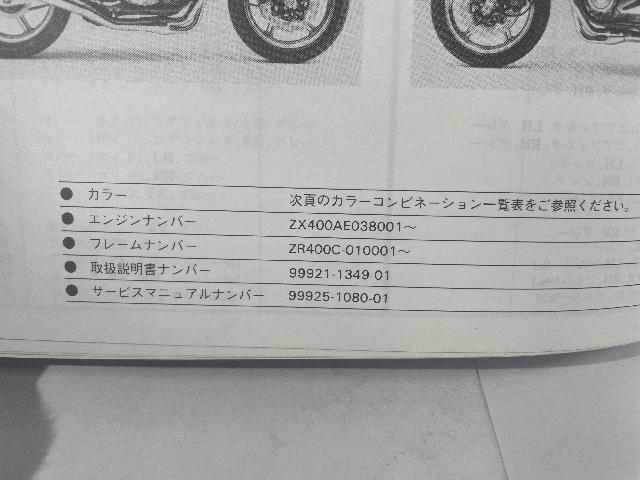 ● カラー 次頁のカラーコンビネーション一覧表をご参照ください。
● エンジンナンバー ZX400AE038001〜
● フレームナンバー ZR400C-010001〜
● 取扱説明書ナンバー 99921-1349 01
● サービスマニュアルナンバー 99925-1080-01